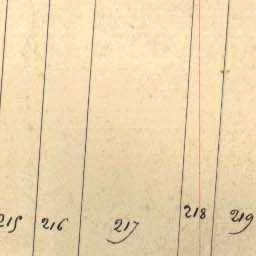 215 216 217 218 219